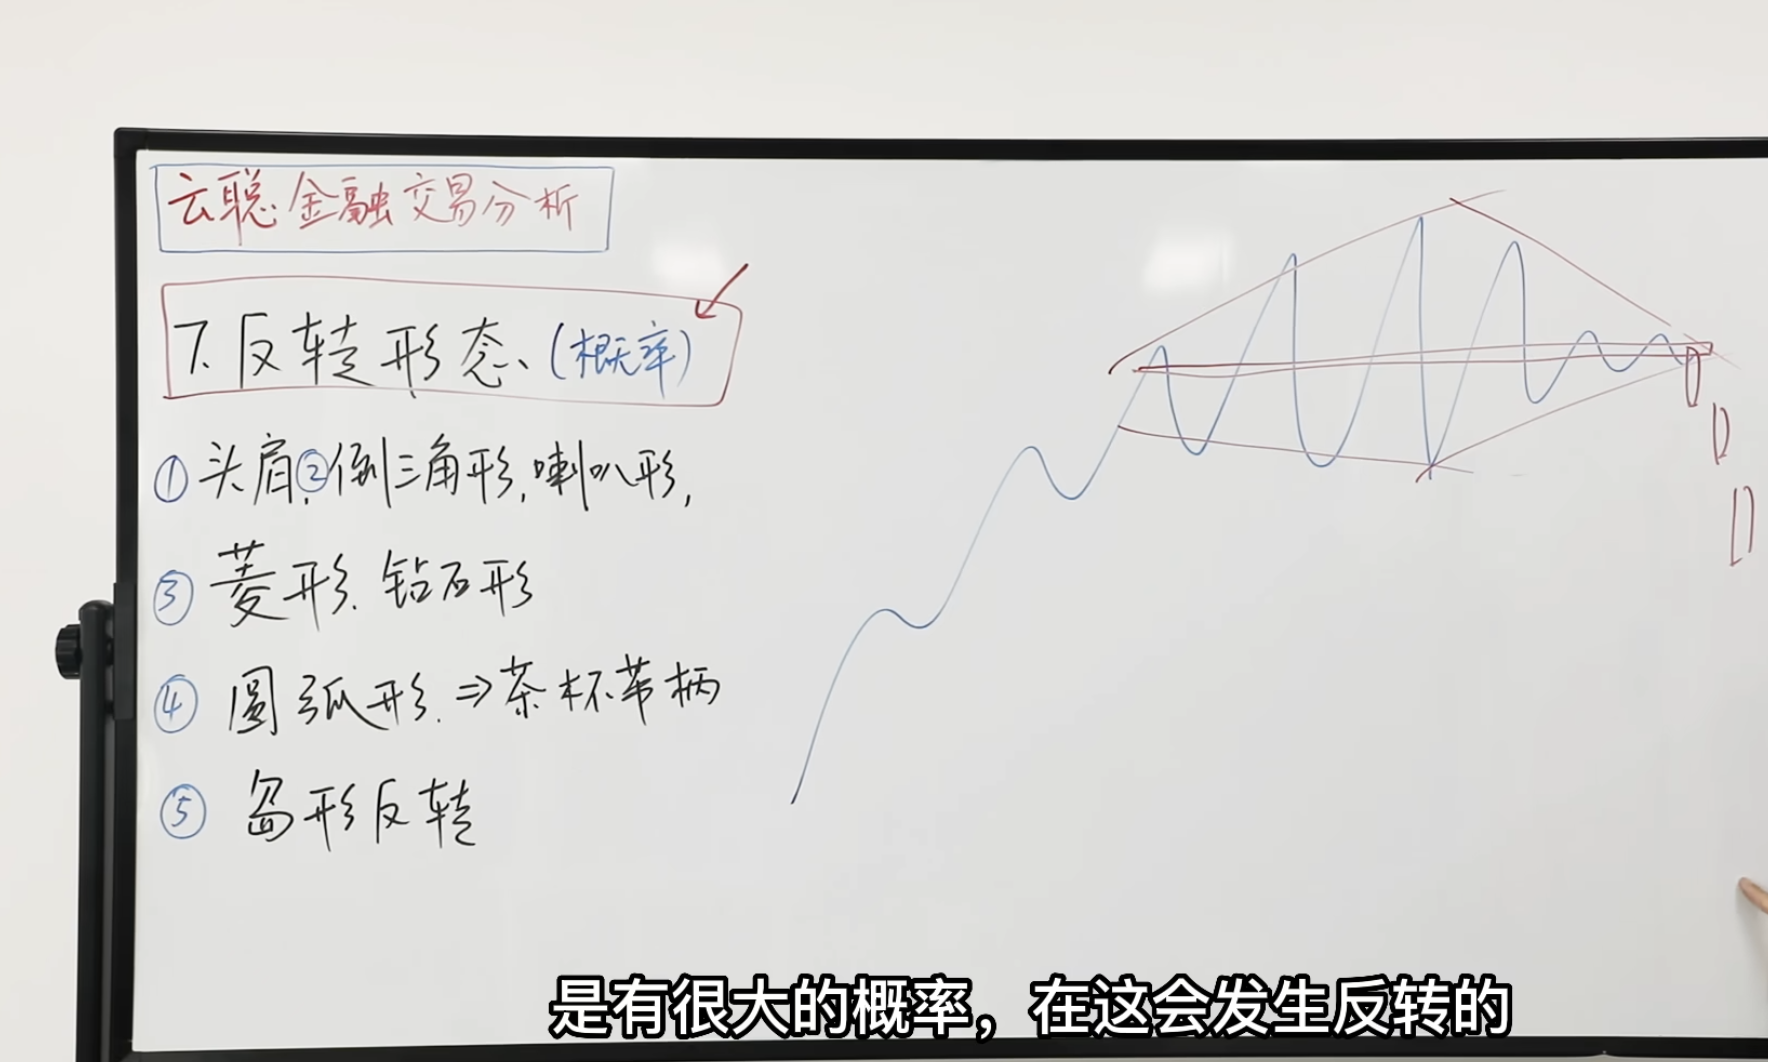 云聪金融交易分析
7.反转形态、(概率)
①头肩,②倒三角形,喇叭形,
③菱形.钻石形
④圆弧形.⇒茶杯带柄
⑤岛形反转
是有很大的概率，在这会发生反转的